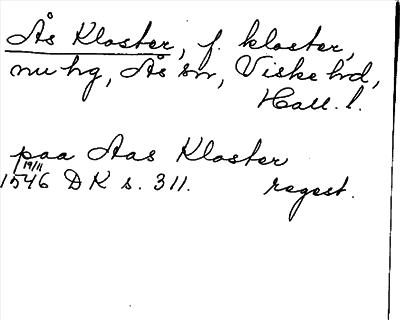 Ås Kloster, f. kloster,
nu hg, Ås sn, Viske hd,
Hall. l.
paa Aas Kloster
19/11
1546 DK s. 311. regest.